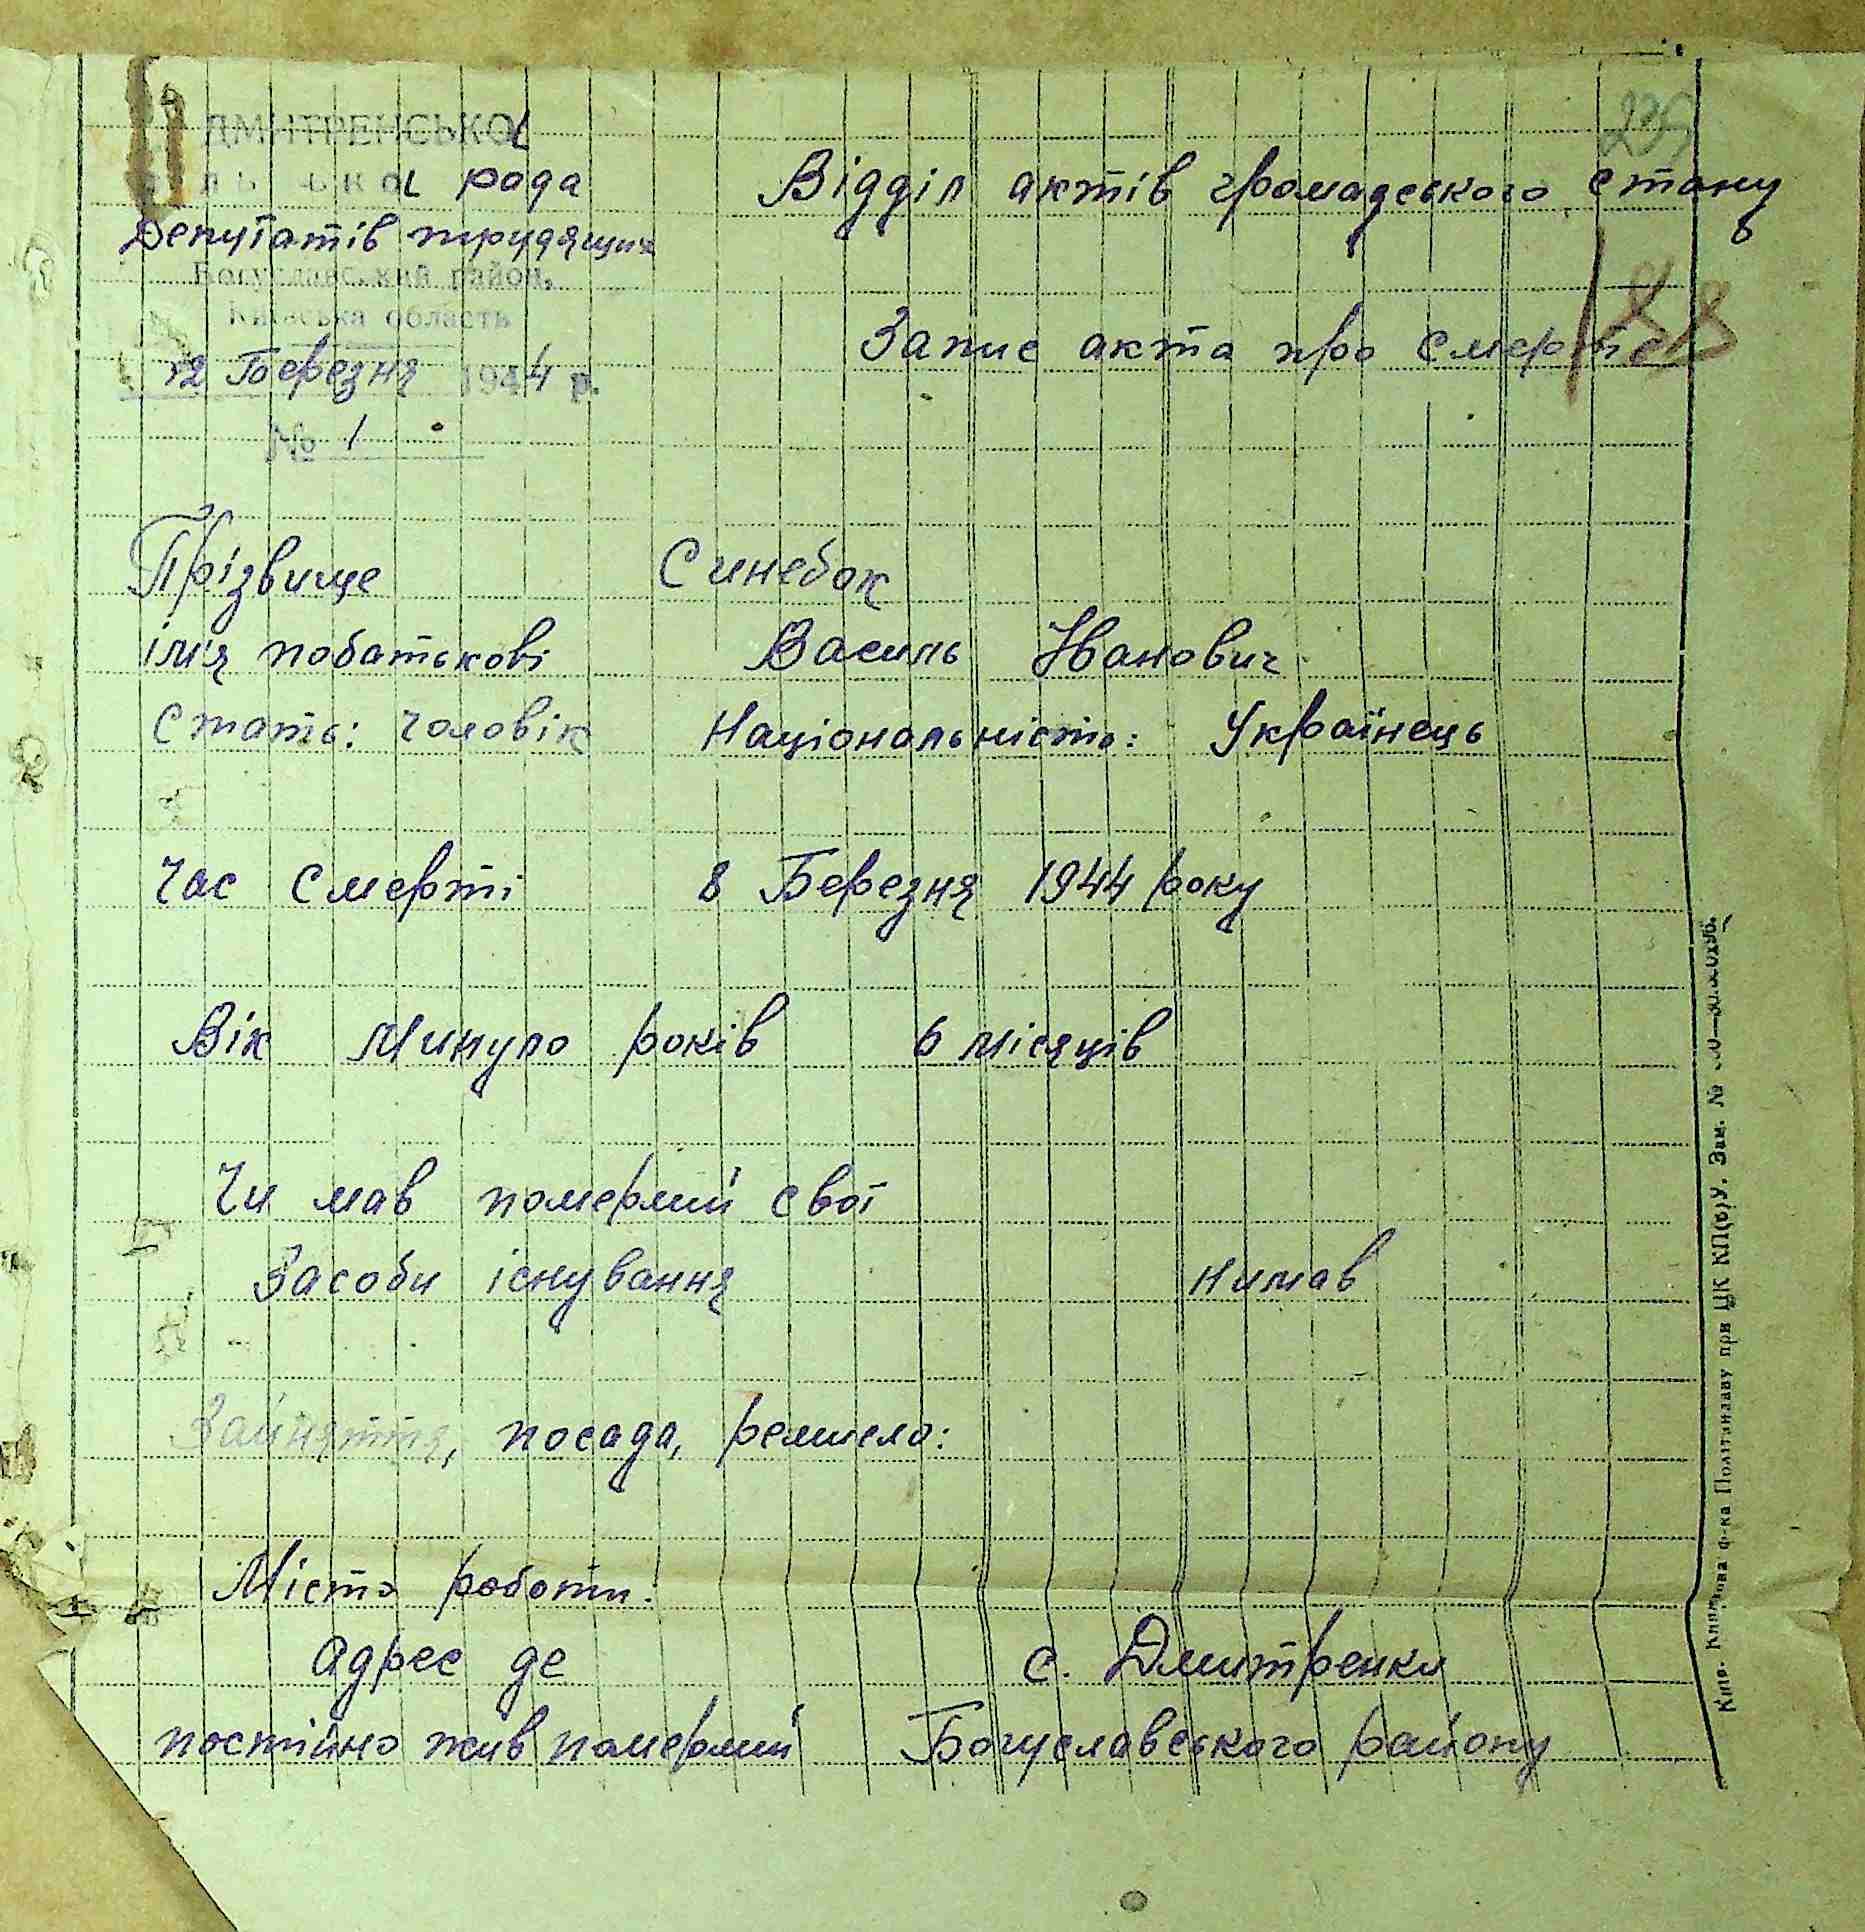 ДМИТРЕНСЬКА
рада
Депутатів трудящих
Богуславський район,
Київська область
12 Березня 1944 р.
№ 1
Відділ актів громадського стану
Запис акта про смерть
188
Прізвище Синебок
ім'я побатькові Василь Иванович
Стать: чоловік Національність: Українець
Час Смерті 8 Березня 1944 року
Вік Минуло років 6 місяців
Чи мав померлий свої
Засоби існування нимав
Зайняття, посада, ремисло:
Міста роботи:
Адрес де с. Дмитренки
постійно жив померлий Богуславського району
Книг. Книжкова ф-ка Політвидаву при ЦК КП(б)У. Зам. №